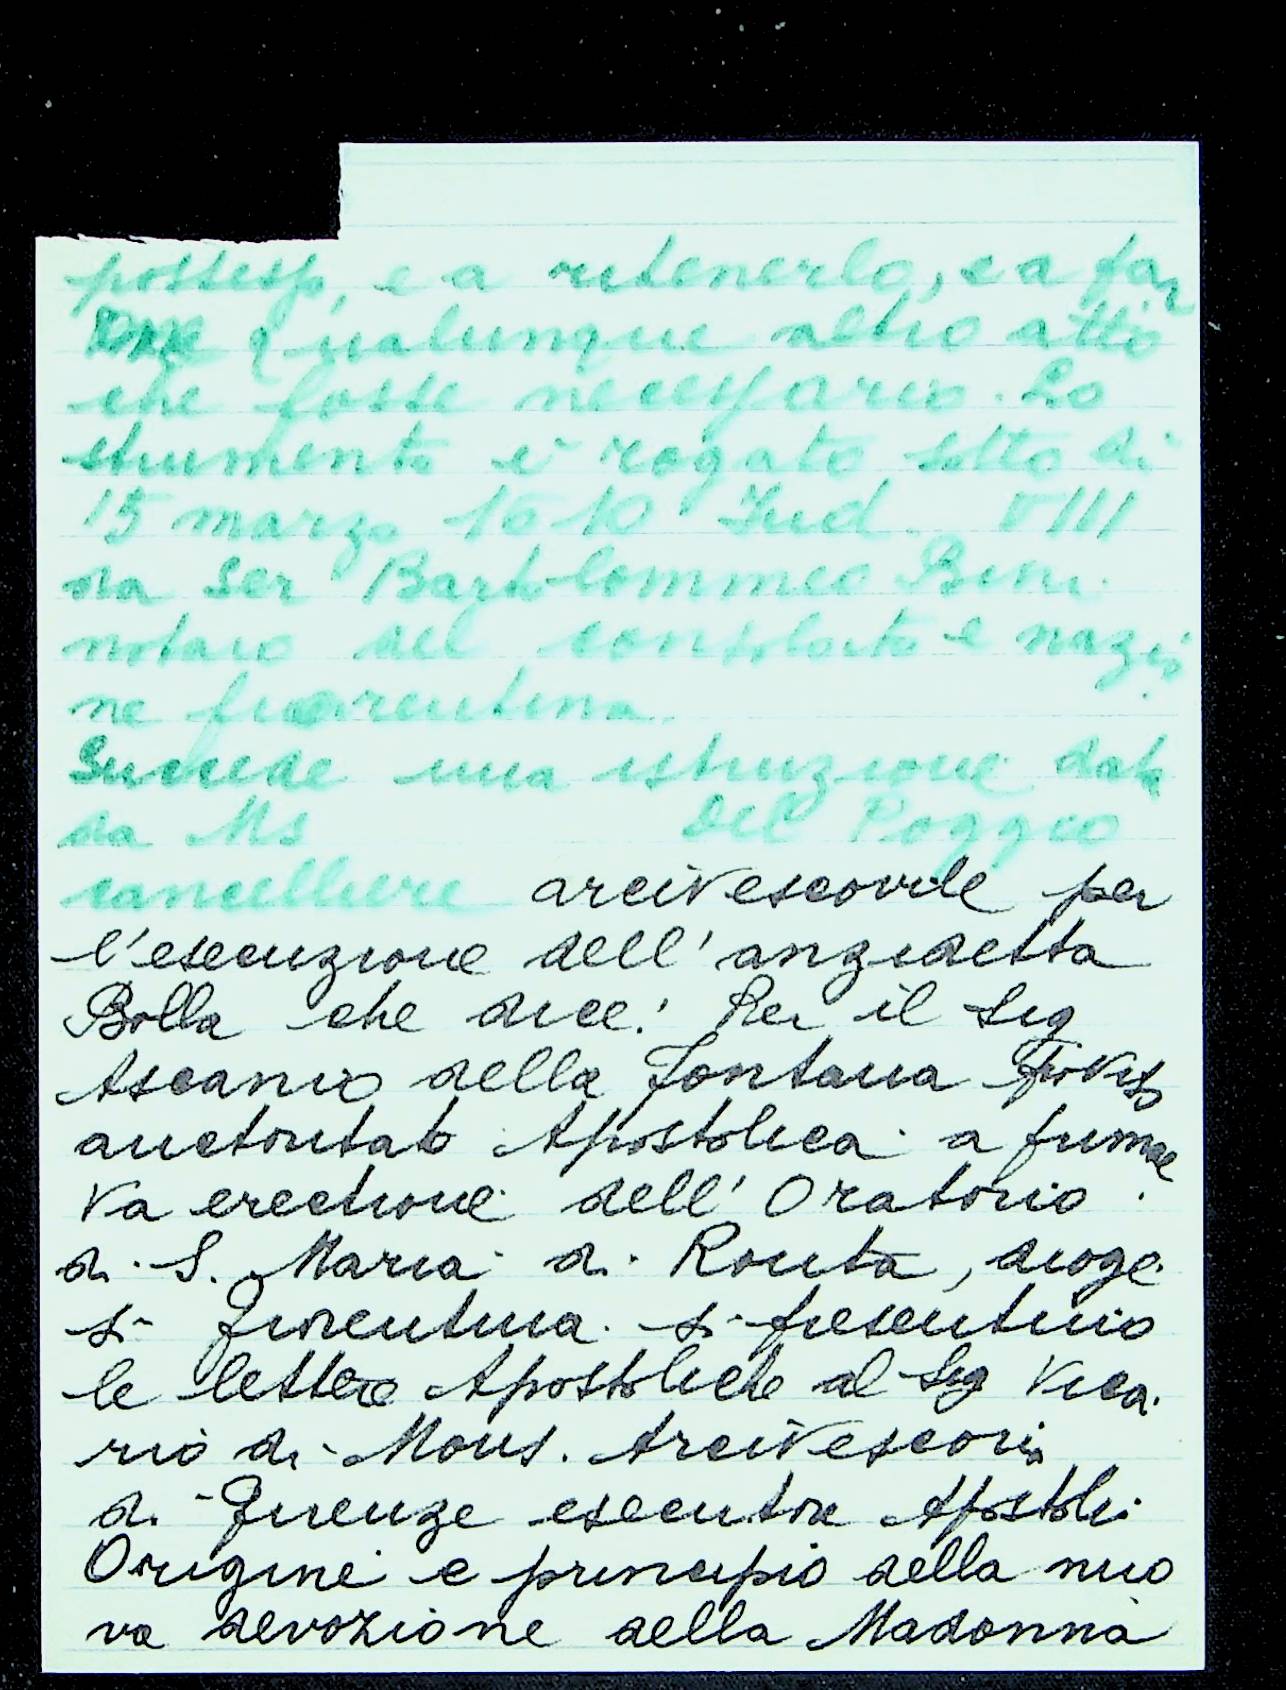 possesso, e a ritenerlo, e a far
ne qualunque altro atto
che fosse necessario. Lo
strumento è rogato sotto di
15 marzo 1610 Ind. VIII
da Ser Bartolommeo Bini
notaro del consolato e nazio
ne fiorentina.
Succede una istruzione data
da Ms del Poggio
cancelliere arcivescovile per
l'esecuzione dell'anzidetta
Bolla che dice: Per il Sig
Ascanio della Fontana
Apostolica a
va erectione dell'Oratorio
di S. Maria di, dioge
si Fiorentina. si presentino
le lettere Apostoliche al Sig Vica
rio di Mons. Arcivescovo
di Firenze esecutore Apostoli
Origine e principio della nuo
va devozione della Madonna